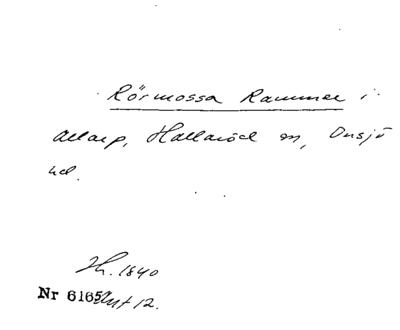 Rörmossa Rammee i
Allarp, Hallaröd sn, Onsjö
hd.
Th. 1840
Nr 6165 Avt 12.